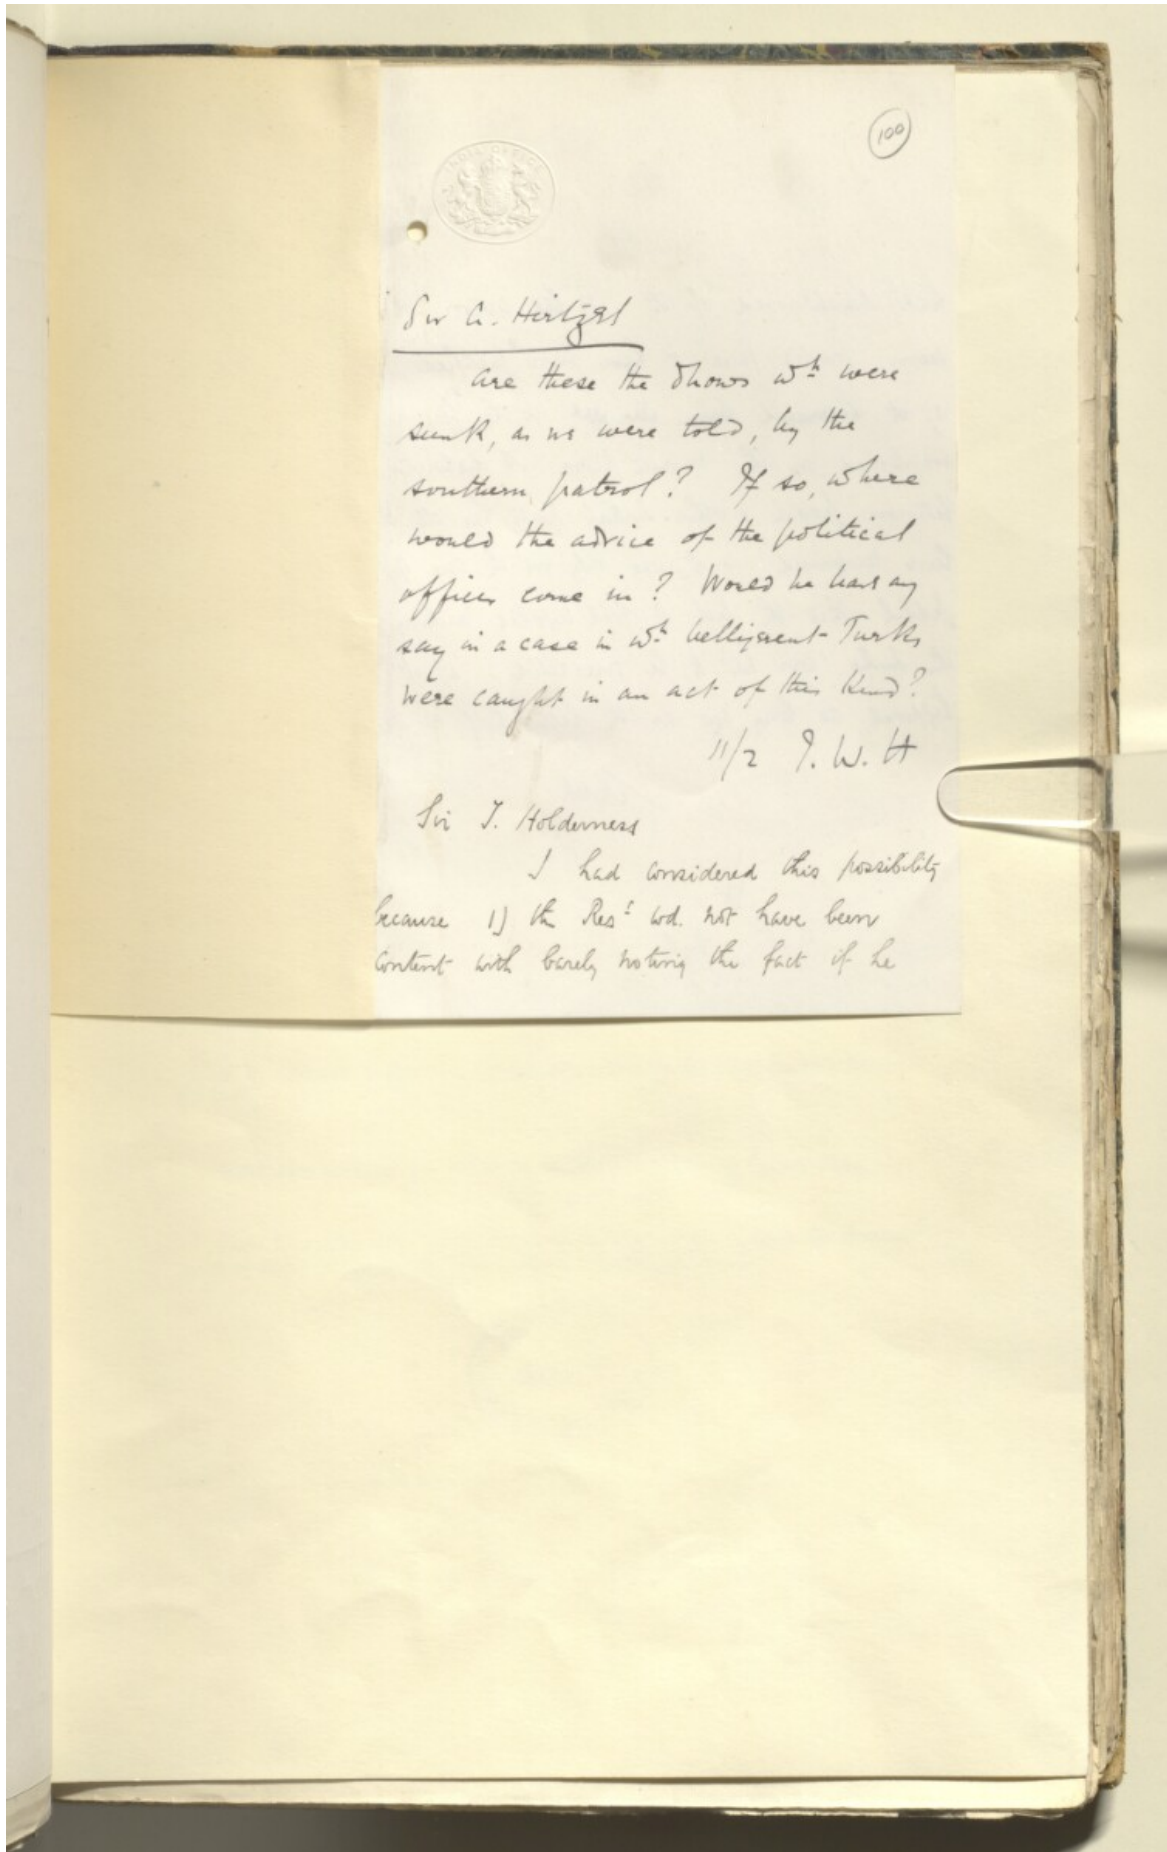 100
INDIA OFFICE
Sir A. Hirtzel
Are these the dhows wh were
sunk, as we were told, by the
southern patrol? If so, where
would the advice of the political
officer come in? Would he have any
say in a case in wh belligerent Turks
were caught in an act of this kind?
11/2 T. W. H
Sir T. Holderness
I had considered this possibility
because 1) the Rest wd. not have been
content with barely noting the fact if he